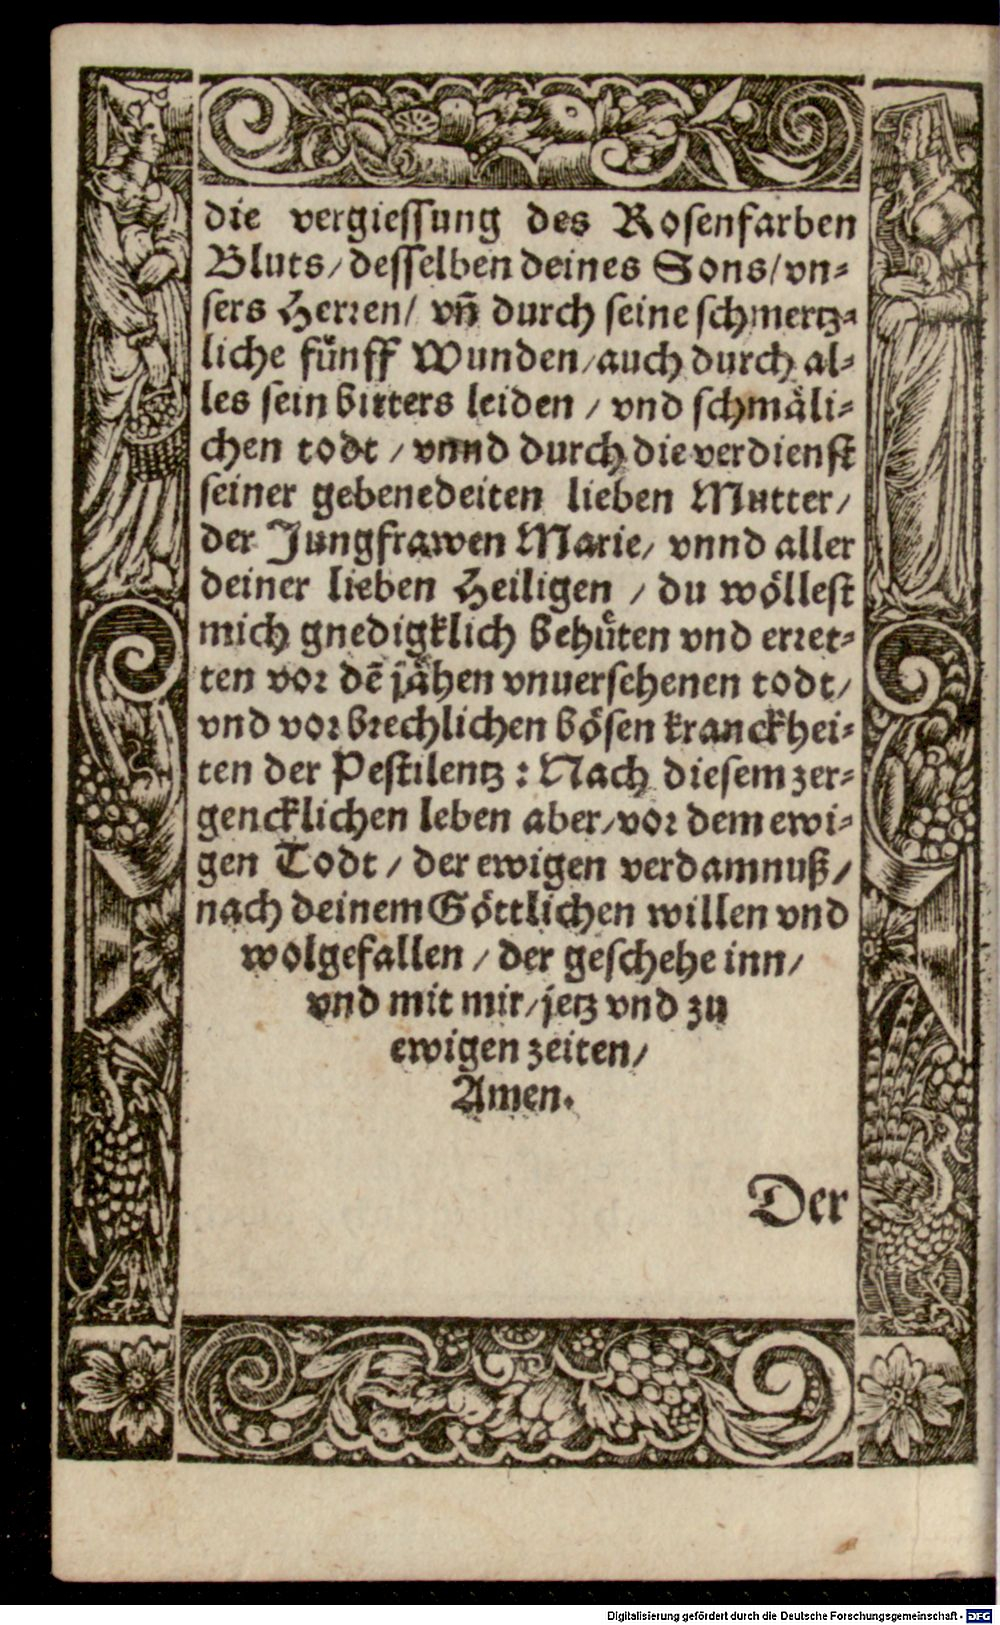 die vergiessung des Rosenfarben
Bluts/ desselben deines Sons/ vn-
sers Herren/ vñ durch seine schmertz-
liche fünff Wunden/ auch durch al-
les sein bitters leiden / vnd schmäli-
chen todt / vnnd durch die verdienst
seiner gebenedeiten lieben Mutter/
der Jungfrawen Marie/ vnnd aller
deiner lieben Heiligen / du wöllest
mich gnedigklich behüten vnd erret-
ten vor dē jähen vnuersehenen todt/
vnd vor brechlichen bösen kranckhei-
ten der Pestilentz : Nach diesem zer-
gencklichen leben aber/ vor dem ewi-
gen Todt / der ewigen verdamnuß/
nach deinem Göttlichen willen vnd
wolgefallen / der geschehe inn/
vnd mit mir/ jetz vnd zu
ewigen zeiten/
Amen.
Der
Digitalisierung gefördert durch die Deutsche Forschungsgemeinschaft - DFG